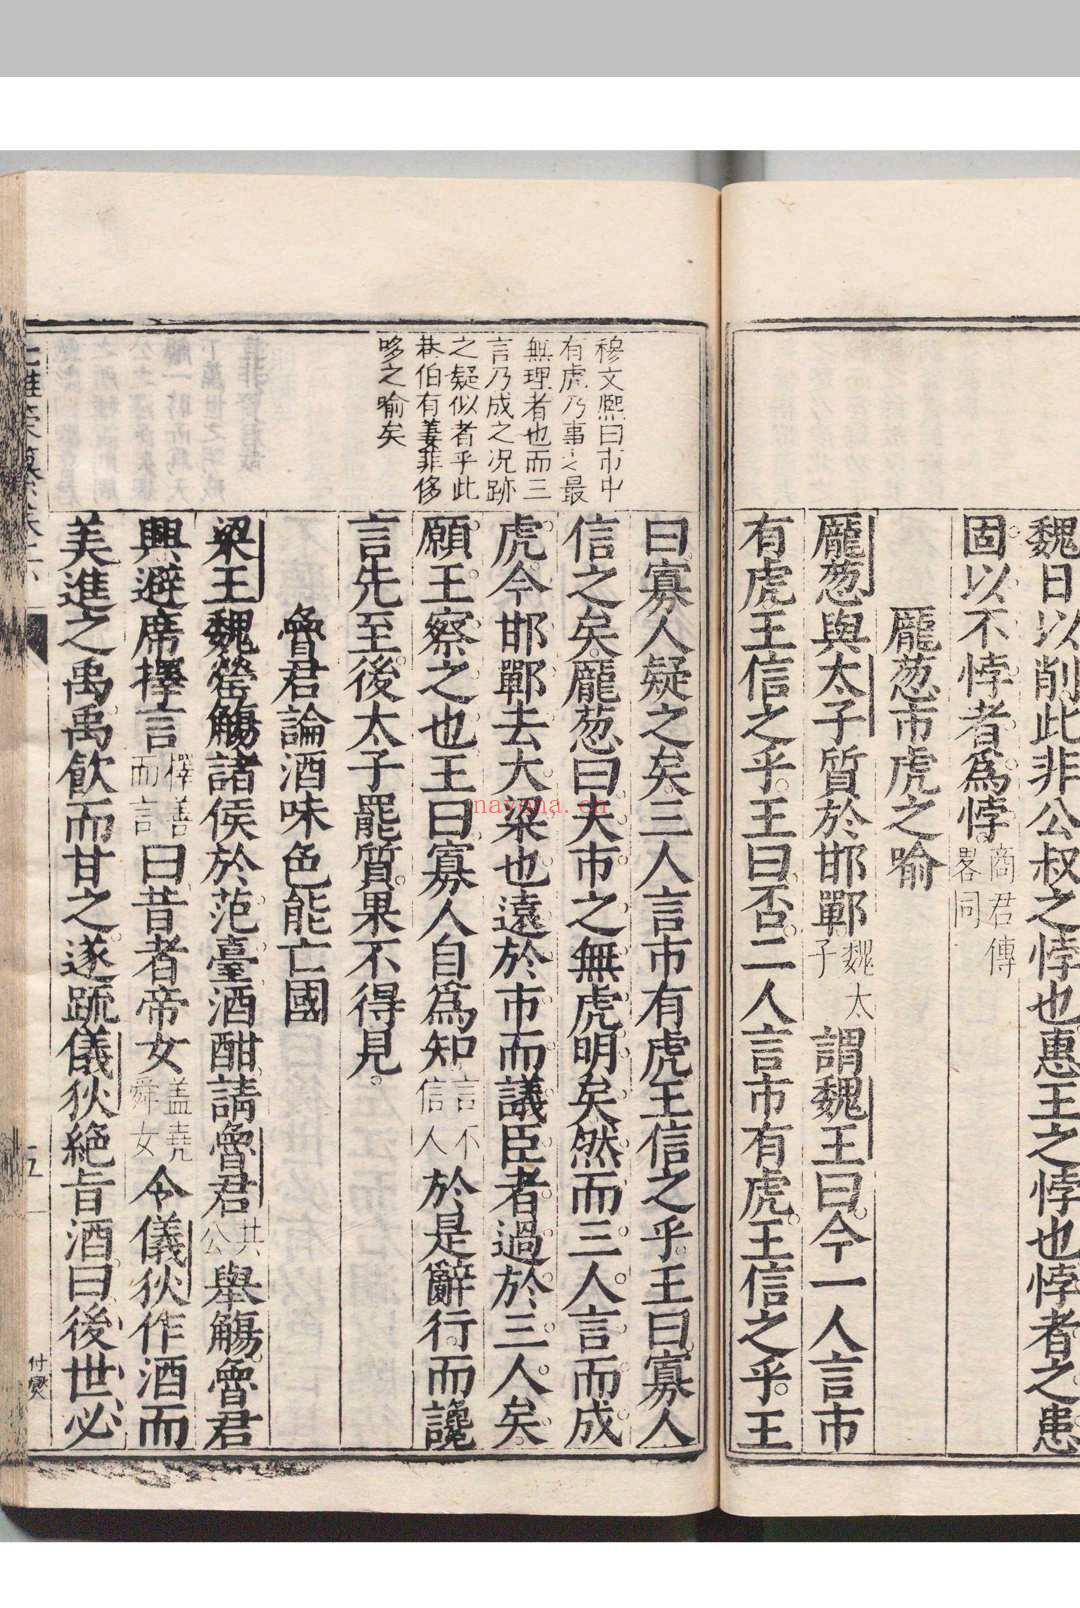 魏日以削此非公叔之悖也惠王之悖也悖者之患
固以不悖者爲悖商君傳畧同
龎葱市虎之喻
龎葱與太子質於邯鄲魏太子謂魏王曰今一人言市
有虎王信之乎王曰否二人言市有虎王信之乎王
穆文熈曰市中
有虎乃事之最
無理者也而三
言乃成之况跡
之疑似者乎此
巷伯有萋菲侈
哆之喻矣
曰寡人疑之矣三人言市有虎王信之乎王曰寡人
信之矣龎葱曰夫市之無虎明矣然而三人言而成
虎今邯鄲去大梁也遠於市而議臣者過於三人矣
願王察之也王曰寡人自爲知言不信人於是辭行而讒
言先至後太子罷質果不得見
魯君論酒味色能亡國
梁王魏罃觴諸侯於范臺酒酣請魯君共公舉觴魯君
興避席擇言擇善而言曰昔者帝女蓋堯舜女令儀狄作酒而
美進之禹禹飲而甘之遂疏儀狄絶旨酒曰後世必
五
付爕
nayona.cn